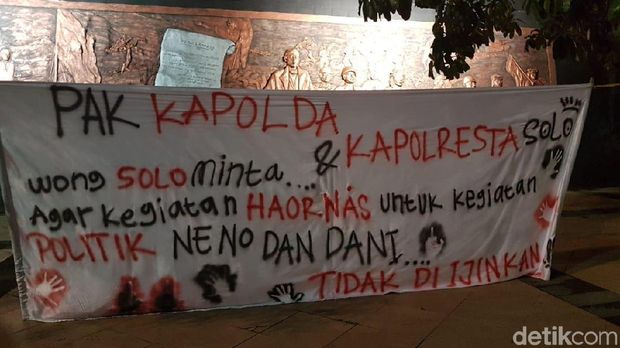 PAK KAPOLDA
& KAPOLRESTA SOLO
wong SOLO minta....
Agar kegiatan HAORNAS untuk kegiatan
POLITIK NENO DAN DANI....
TIDAK DI IJINKAN
detikcom